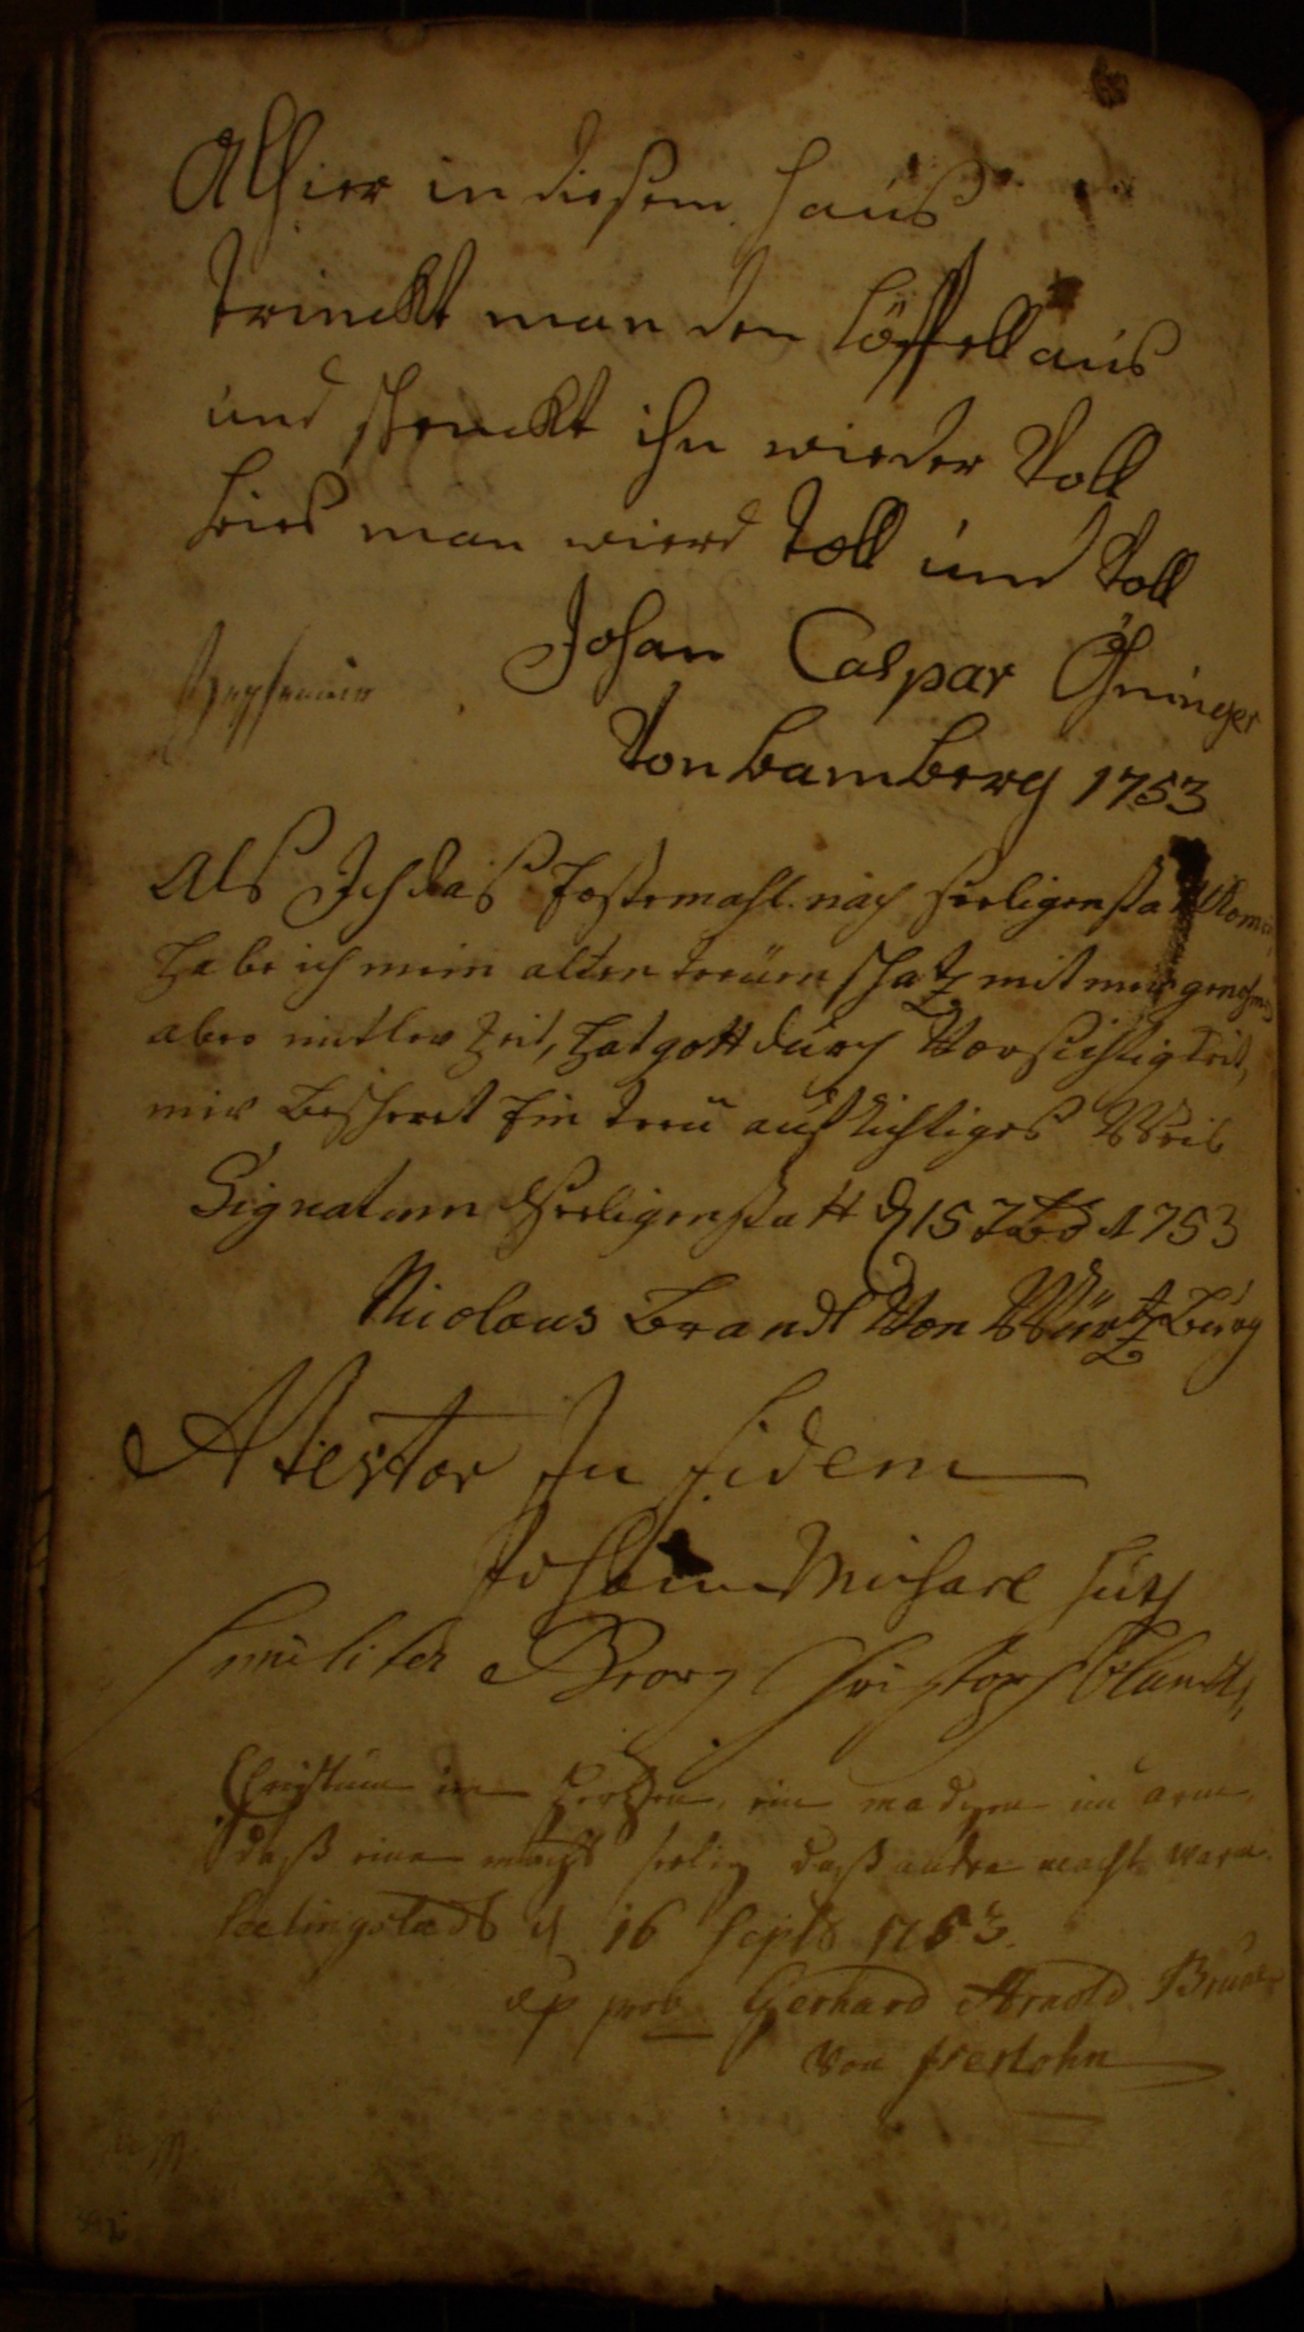 Alhier in diesem Hauß
trinckt man den Löffell aus
und schenckt ihn wieder Voll
hies man wierd toll und Voll
Johan Caspar
Von Bamberg 1753
Als Ich das Erstemahl nach Seeligenstatt Kom
habe ich mein alten treuen schatz mit mir genohm
aber mitler Zeit, hat gott durch Vorsichtigkeit,
mir Bescheret Ein treu aufrichtiges Weib
Signatum Seeligenstatt d 15 7br 1753
Nicolaus Brandt Von Würtzburg
Attestor In fidem
Johann Michael Huth
Similiter Georg Christoph
Christum im Hertzen, ein madgen im arm,
daß eine macht seelig daß andre macht warm.
Seelingstadt d 16 Septb 1753.
Gerhard Arnold
von Iserlohn